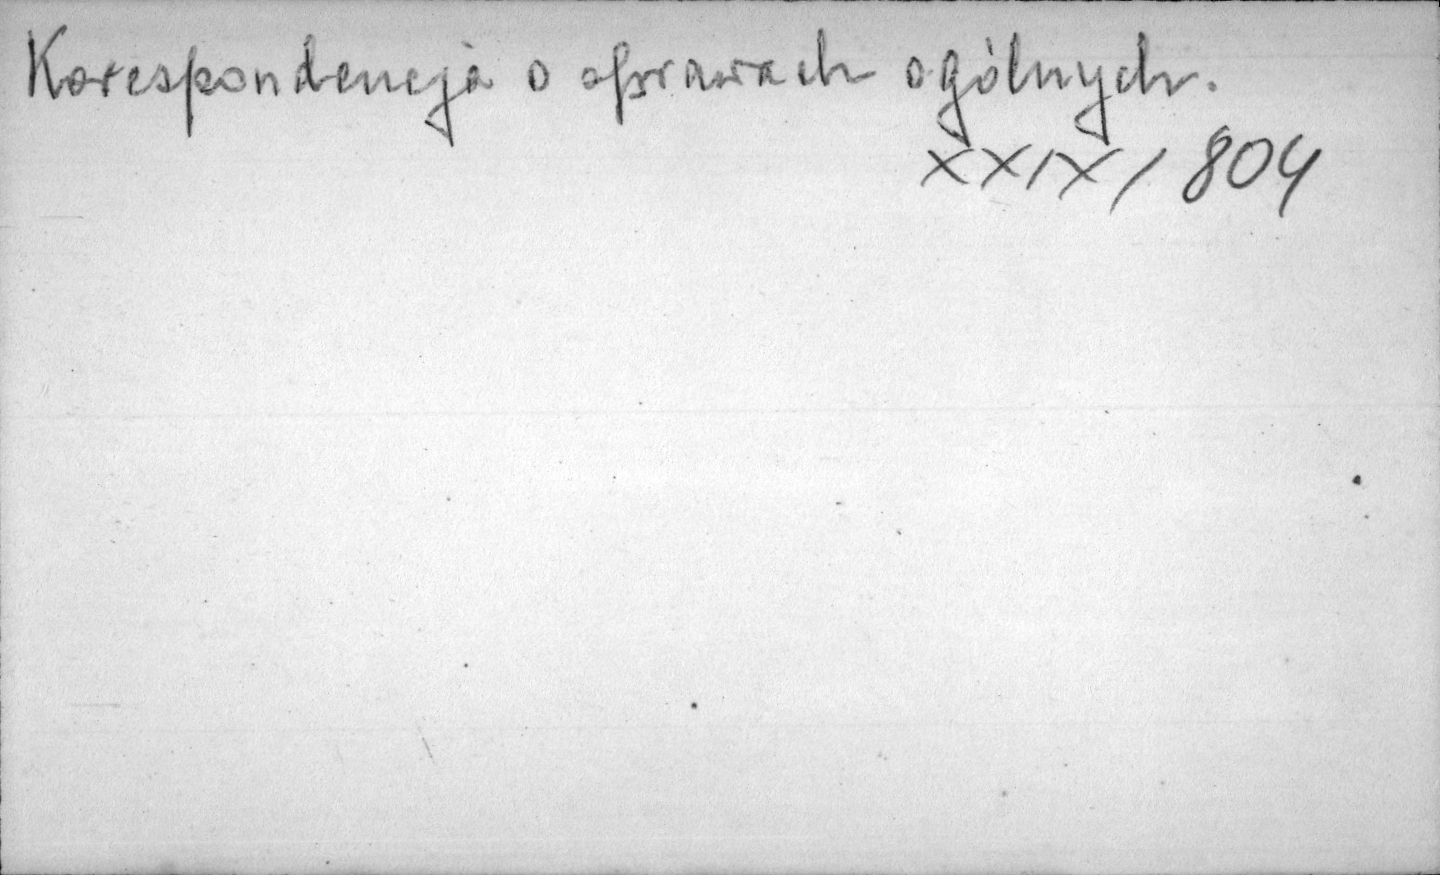 Korespondencja o sprawach ogólnych.
XXIX/804